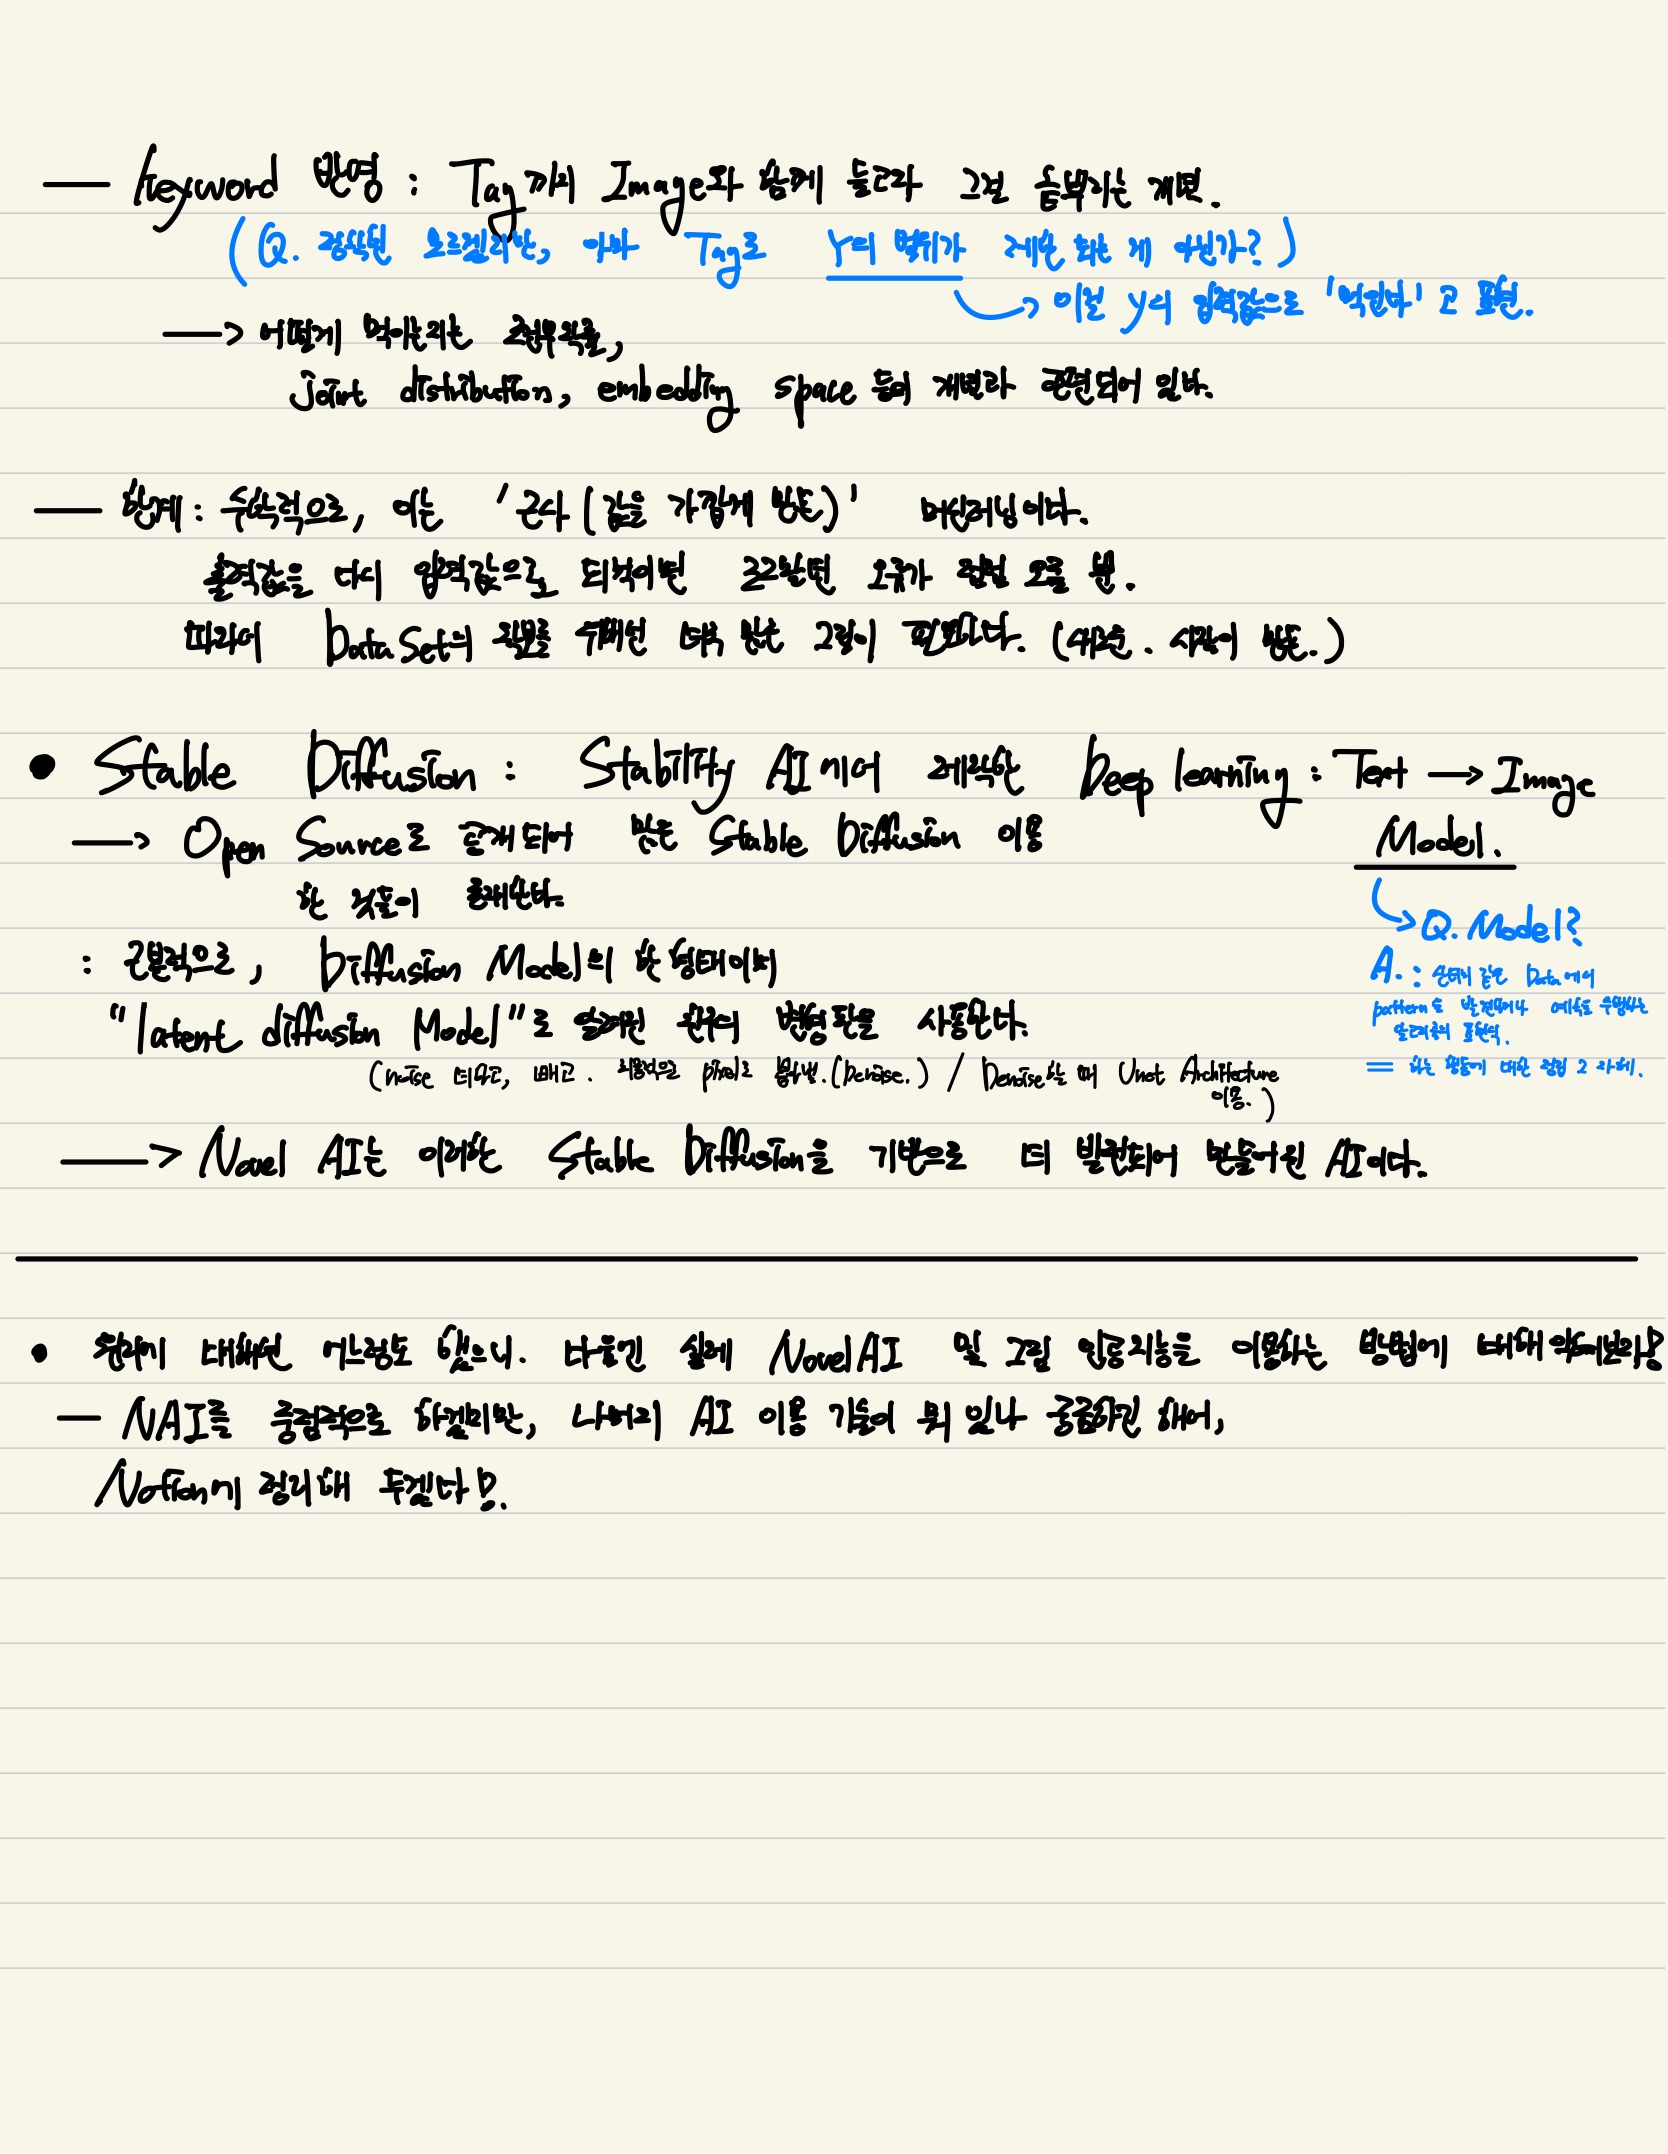 — Keyword 반영 : Tag까지 Image와 함께 들고와 그걸 공부하는 개념.
(Q. 정확힌 모르겠지만, 아마 Tag로 Y의 범위가 제한 되는 게 아닌가?)
→ 이걸 y의 입력값으로 '먹인다' 고 표현.
→ 어떻게 먹이는지는 조건부확률,
joint distribution, embedding space 등의 개념과 연관되어 있다.
— 한계 : 수학적으로, 이는 '근사 (값을 가깝게 만듦)' 머신러닝이다.
출력값을 다시 입력값으로 되먹이면 오류가 점점 오를 뿐.
따라서 Data Set의 확보를 위해선 더욱 많은 그림이 필요하다. (시간이 만듦.)
• Stable Diffusion : Stability AI에서 제작한 Deep learning : Text → Image
Model.
→ Open Source로 공개되어 많은 Stable Diffusion 이용
한 것들이 존재한다.
→ Q. Model?
: 근본적으로, Diffusion Model의 한 형태이며
A. : Data에서
pattern을 발견하거나 예측을 수행하는
알고리즘의 표현식.
"latent diffusion Model"로 알려진 확산의 변형판을 사용한다.
(noise 더하고, 빼고. 최종적으로 pixel로 뽑아냄.(Denoise.) / Denoise할 때 Unet Architecture
이용.)
= 하는 행동에 대한 정립 그 자체.
→ Novel AI는 이러한 Stable Diffusion을 기반으로 더 발전되어 만들어진 AI이다.
• 원리에 대해선 어느정도 했으니. 다음엔 실제 NovelAI 및 그림 인공지능을 이용하는 방법에 대해 익혀보자!
— NAI를 중점적으로 하겠지만, 나머지 AI 이용 기술이 뭐 있나 궁금하긴 해서,
Notion에 정리해 두겠다!.